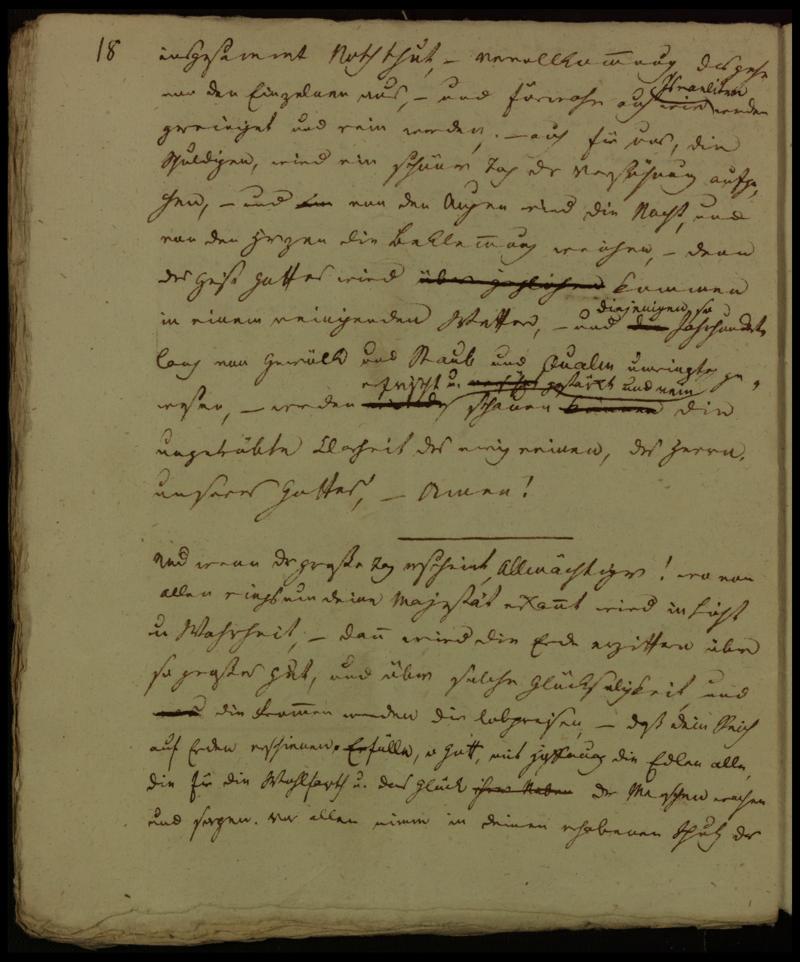 18
insgesammt Noth thut, – vervollkom̄nung desgehe
nur den Einzelnen aus, – und fürwahr auch Israeliten werden
gereinigt und rein werden. – auch für uns, die
Schuldigen, wird ein schöner Tag der Versöhnung aufge„
hen, – und von den Augen wird die Nacht, und
von den Herzen die Beklem̄ung weichen, – denn
der Geist Gottes wird über jeglichen kommen
in einem reinigenden Wetter, – und diejenigen, so Jahrhunderte
lang von Gewölk und Staub und Qualm umringt ge„
wesen, – werden erfrischt u. gestärkt und rein schauen können die
ungetrübte Klarheit des ewig reinen, des Herrn,
unseres Gottes, – Amen!
Und wenn der große Tag erscheint, Allmächtiger! wo von
allen ringsum deine Majestät erkan̄t wird in Licht
u Wahrheit, – dan̄ wird die Erde erzittern über
so großes Gut, und über solche Glückseligkeit, und
die Frommen werden dir lobpreisen, – daß dein Reich
auf Erden erschienen. Erfülle, o Gott, mit Hoffnung die Edlen alle,
die für die Wohlfarth u. das Glück ihrer Neben der Menschen wachen
und sorgen. Vor allen nimm in deinen erhabenen Schutz der